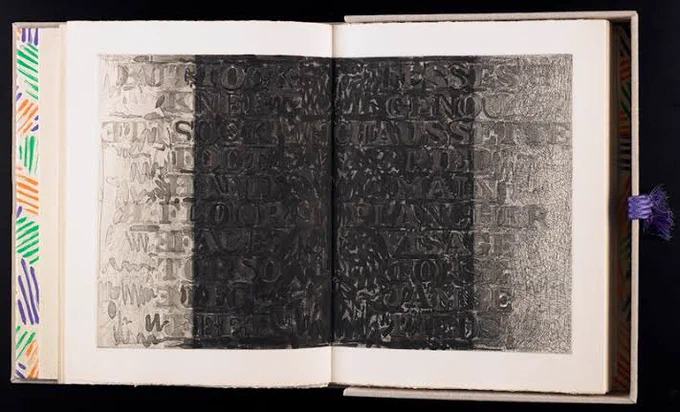 BUTTOCKS
KNEE
SOCK
HAND
FLOOR
FACE
TORSO
LEG
FEET
FESSES
GENOU
CHAUSSETTE
PIED
MAIN
PLANCHER
VISAGE
TORSE
JAMBE
PIEDS